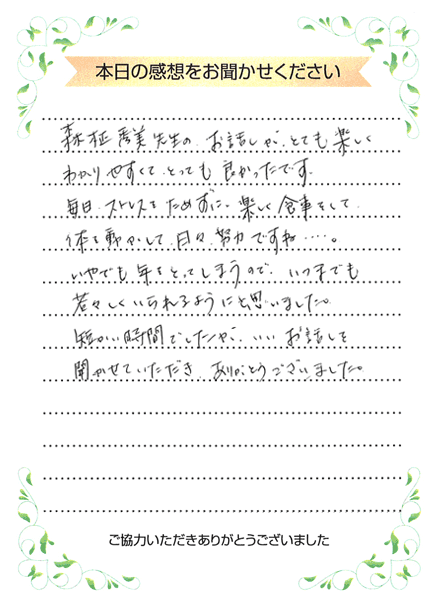 本日の感想をお聞かせください
森 先生の、お話しが、とても 楽しく
わかりやすくて、とっても 良かったです。
毎日、ストレスをためずに、楽しく 食事をして、
体を動かして、日々、努力ですね……。
いやでも 年をとってしまうので、いつまでも
若々しくいられるようにと思いました。
短かい時間でしたが、いい お話しを
聞かせていただき、ありがとうございました。
ご協力いただきありがとうございました